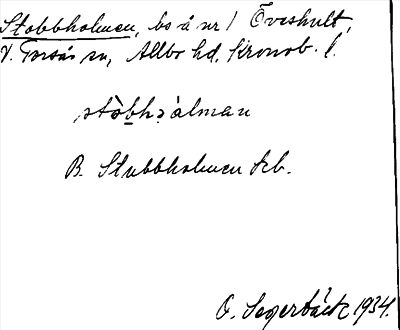 Stobbholmen, bs å nr 1 Öveshult,
V. Torsås sn, Allbo hd, Kronob. l.
stòbhɔ̀lman
B. Stubbholmen Jeb.
O. Segerbäck 1934.